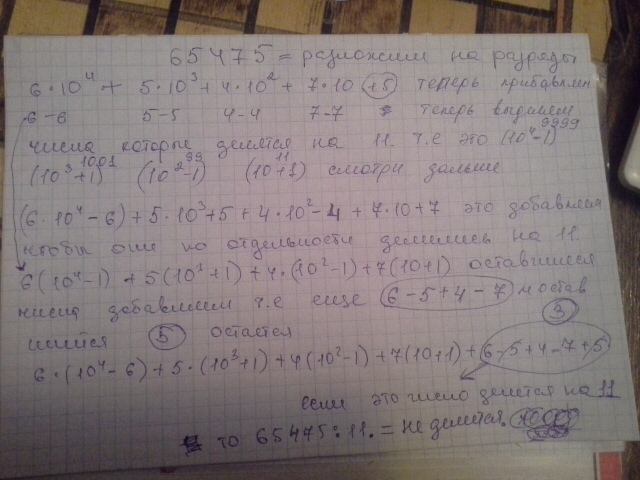 65475 = разложим на разряды
6·10⁴ + 5·10³ + 4·10² + 7·10 +5 теперь прибавим
6-6 5-5 4-4 7-7 теперь выделяем
числа которые делятся на 11. т.е это (10⁴-1) 9999
(10³+1) 1001 (10²-1) 99 (10+1) 11 смотри дальше
(6·10⁴-6) + 5·10³+5 + 4·10²-4 + 7·10+7 это добавили
чтобы они по отдельности делились на 11.
6(10⁴-1) + 5(10³+1) + 4·(10²-1) + 7(10+1) оставшиеся
числа добавляем т.е еще 6-5+4-7 и остав
шийся 5 остается 3
6·(10⁴-6) + 5·(10³+1) + 4(10²-1) + 7(10+1) + 6-5+4-7+5
если это число делится на 11
то 65475:11. = не делится.